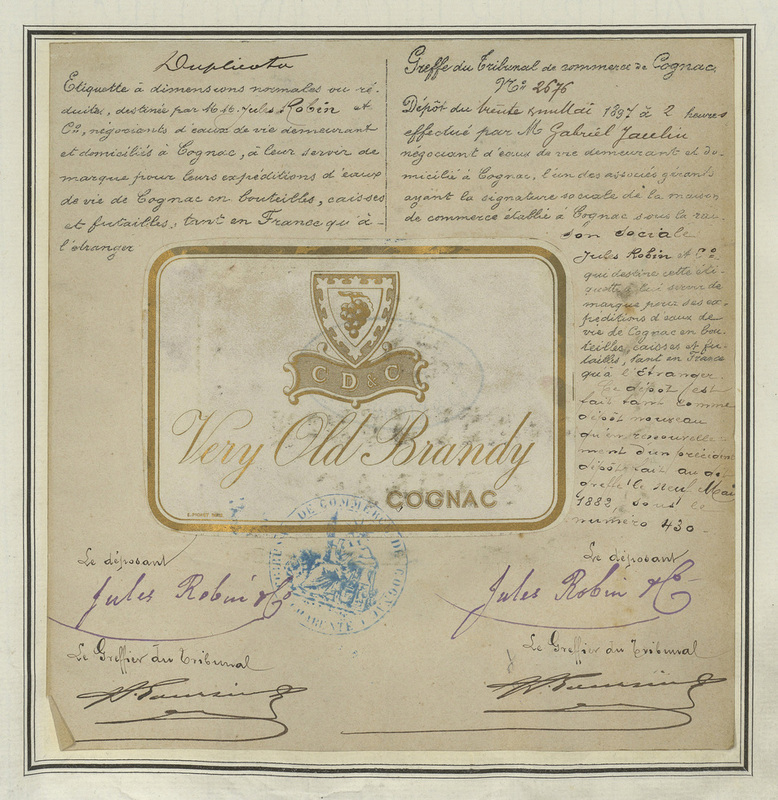 Duplicata
Etiquette à dimensions normales ou ré-
duites, destinée par M.st. Jules Robin et
Cie, négociants d'eaux de vie demeurant
et domiciliés à Cognac, à leur servir de
marque pour leurs expéditions d'eaux
de vie de Cognac en bouteilles, caisses
et futailles, tant en France qu'à
l'étranger
Greffe du Tribunal de commerce de Cognac
No. 2676
Dépôt du trente Mai 1897 à 2 heures
effectué par M. Gabriel Jaulin
négociant d'eaux de vie demeurant et do-
micilié à Cognac, l'un des associés gérants
ayant la signature sociale de la maison
de commerce établie à Cognac sous la rai-
son sociale
Jules Robin et Cie
qui destine cette éti-
quette à lui servir de
marque pour ses ex-
péditions d'eaux de
vie de Cognac en bou-
teilles, caisses et fu-
tailles, tant en France
qu'à l'Etranger
Ce dépôt est
fait tant comme
dépôt nouveau
qu'en renouvelle-
ment d'un précédent
dépôt fait au
greffe le neuf Mai
1882, sous le
numéro 430
C D & C
Very Old Brandy
COGNAC
TRIBUNAL DE COMMERCE DE COGNAC
CHARENTE
Le déposant
Jules Robin & Co
Le Greffier du Tribunal
Le déposant
Jules Robin & Co
Le Greffier du Tribunal